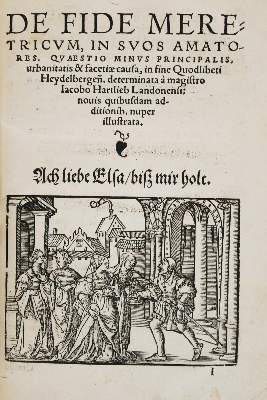 DE FIDE MERE-
TRICVM, IN SVOS AMATO-
RES. QVAESTIO MINVS PRINCIPALIS,
urbanitatis & facetiæ causa, in fine Quodlibeti
Heydelbergeñ. determinata à magistro
Iacobo Hartlieb Landonensi:
nouis quibusdam ad-
ditionib. nuper
illustrata.
Ach liebe Elsa/biß mir holt.